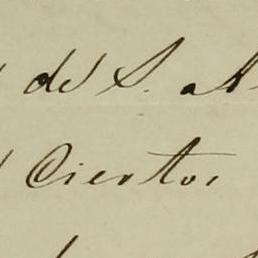 de S. A
Ciertos